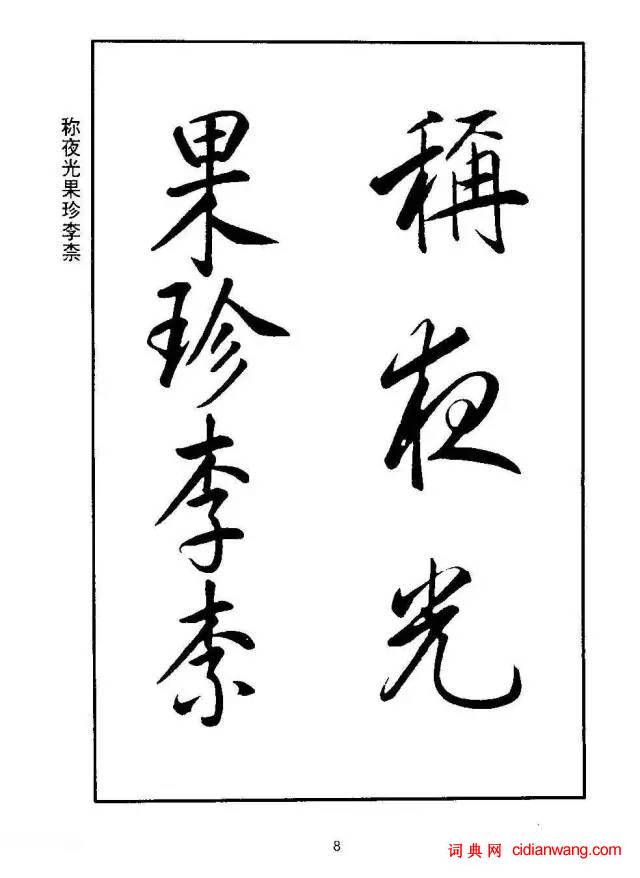 稱夜光
果珍李柰
称夜光果珍李柰
8
词典网 cidianwang.com